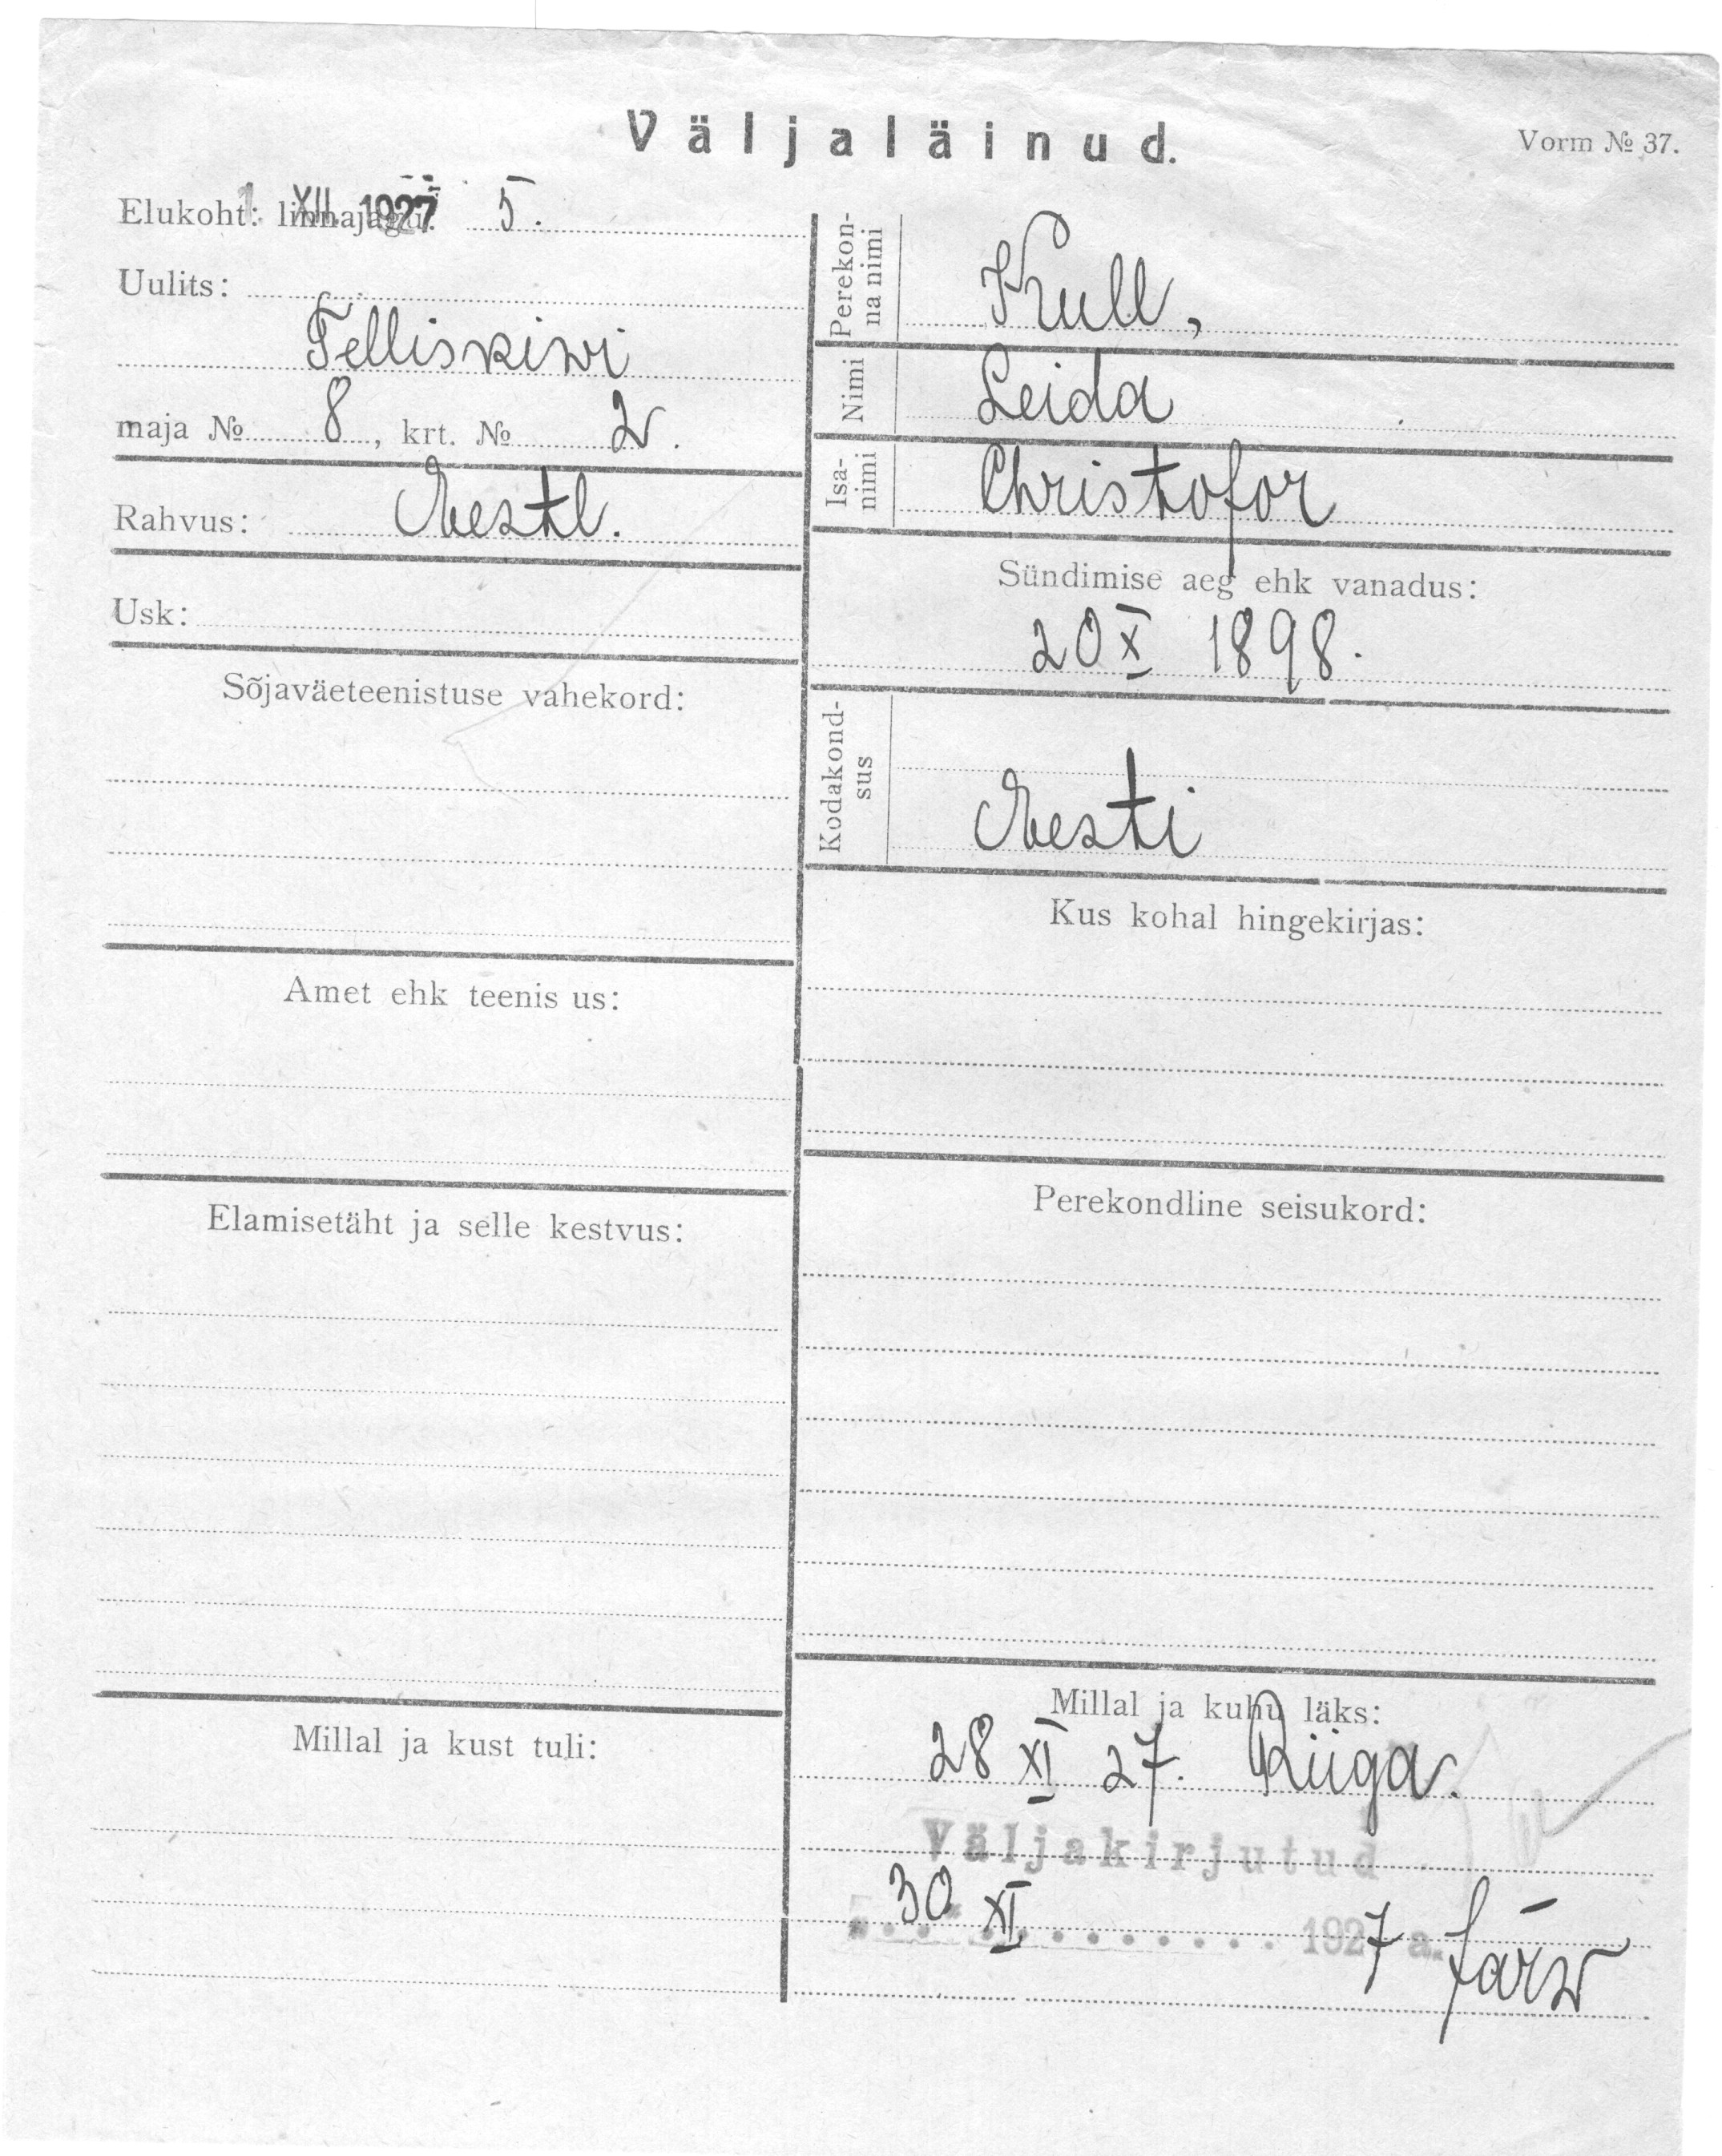 Väljaläinud.
Vorm № 37.
1 XII. 1927
Elukoht: linnajagu: 5.
Uulits:
Telliskiwi
maja № 8, krt. № 2.
Rahvus: Eestl.
Usk:
Sõjaväeteenistuse vahekord:
Amet ehk teenis us:
Elamisetäht ja selle kestvus:
Millal ja kust tuli:
Perekon-
na nimi
Kull,
Nimi Leida
Isa-
nimi
Christofor
Sündimise aeg ehk vanadus:
20 X 1898.
Kodakond-
sus
Eesti
Kus kohal hingekirjas:
Perekondline seisukord:
Millal ja kuhu läks:
28 XI 27. Riiga.
Väljakirjutud
30 XI 1927 a.